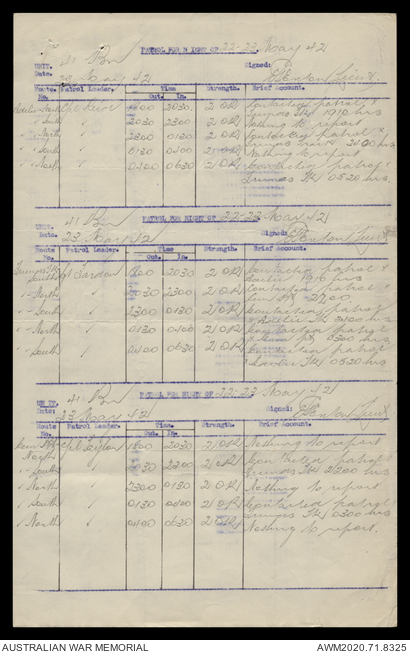 41 Bn
PATROL FOR NIGHT OF 22-23 May 42
UNIT.
Date. 23 May 42
Signed: Lieut.
Route. Patrol Leader. Time Strength. Brief Account.
No. Out. In.
1800 2030 2 OR Contacted patrol x
South 1910 hrs
2030 2300 2 OR Nothing to report
North 2300 0130 2 OR Contacted patrol x
2400 hrs
South 0130 0400 2 OR Nothing to report
North 0400 0630 2 OR Contacted patrol x
0520 hrs.
41 Bn
UNIT. PATROL FOR NIGHT OF 22-23 May 42
Date. 23 May 42 Signed: Lieut
Route Patrol Leader. Time Strength. Brief Account.
No. Out. In.
South 1800 2030 2 OR Contacted patrol x
1910 hrs
North 2030 2300 2 OR Contacted patrol
2200
South 2300 0130 2 OR Contacted patrol
2400 hrs
North 0130 0400 2 OR Contacted patrol
0300 hrs
South 0400 0630 2 OR Contacted patrol
0520 hrs
UNIT. 41 Bn PATROL FOR NIGHT OF 22-23 May 42
Date: 23 May 42 Signed: Lieut
Route Patrol Leader. Time Strength. Brief Account.
No. Out. In.
North 1800 2030 2 OR Nothing to report
South 2030 2300 2 OR Contacted patrol
2200 hrs
North 2300 0130 2 OR Nothing to report
South 0130 0400 2 OR Contacted patrol
0300 hrs
North 0400 0630 2 OR Nothing to report.
AUSTRALIAN WAR MEMORIAL AWM2020.71.8325